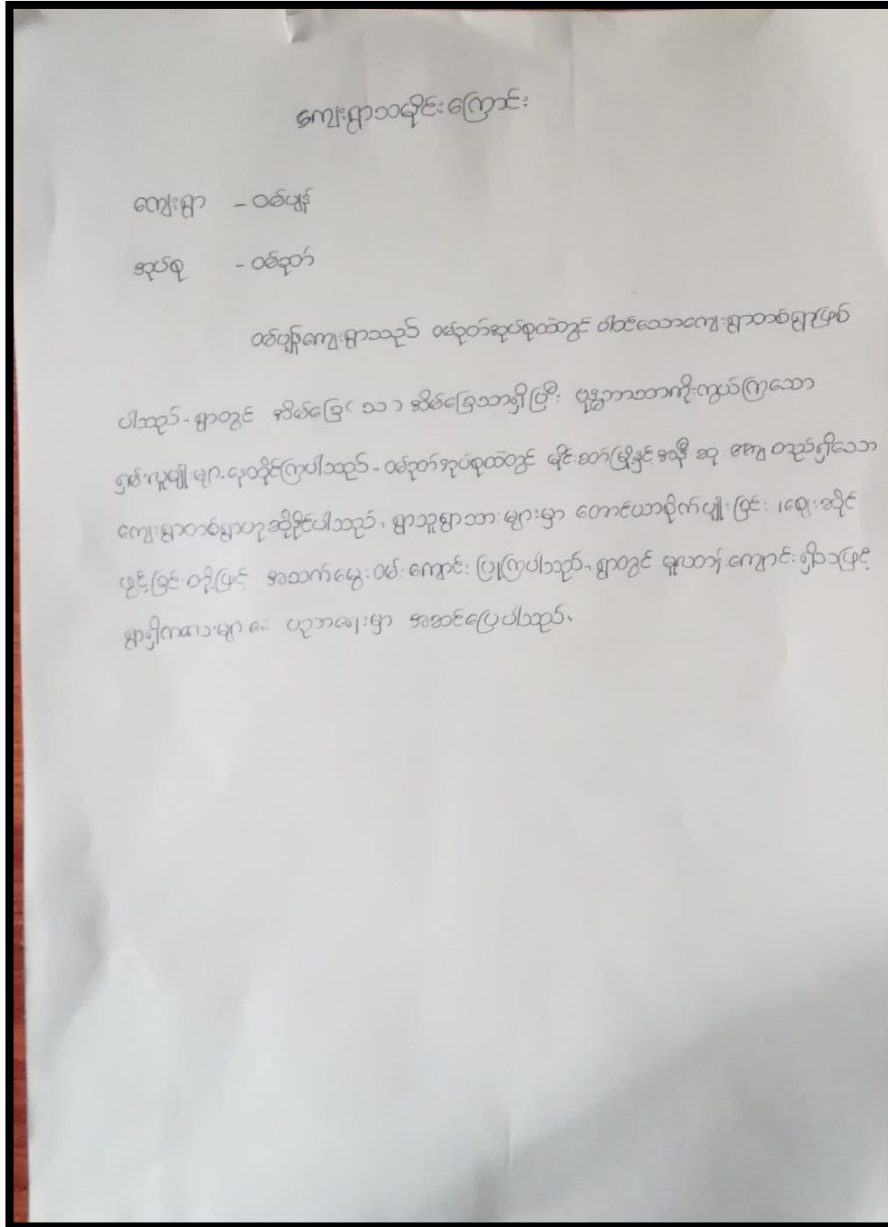 ကျေးရွာသမိုင်းကြောင်း
ကျေးရွာ - ဝမ်ပျန်
အုပ်စု - ဝမ်ဥတ်
ဝမ်ပျန်ကျေးရွာသည် ဝမ်ဥတ်အုပ်စုထဲတွင် ပါဝင်သောကျေးရွာတစ်ရွာဖြစ်
ပါသည်။ ရွာတွင် အိမ်ခြေ ( ၁၁ ) အိမ်ခြေသာရှိပြီး ဗုဒ္ဓဘာသာကိုးကွယ်ကြသော
ရှမ်းလူမျိုးများ နေထိုင်ကြပါသည်။ ဝမ်ဥတ်အုပ်စုထဲတွင် မိုင်းဆတ်မြို့နှင့် အနီးဆုံး တည်ရှိသော
ကျေးရွာတစ်ရွာဟုဆိုနိုင်ပါသည်။ ရွာသူရွာသားများမှာ တောင်ယာစိုက်ပျိုးခြင်း ၊ ဈေးဆိုင်
ဖွင့်ခြင်းတို့ဖြင့် အသက်မွေးဝမ်းကျောင်း ပြုကြပါသည်။ ရွာတွင် မူလတန်းကျောင်း ရှိသဖြင့်
ရွာရှိကလေးများ ပညာရေးမှာ အဆင်ပြေပါသည်။